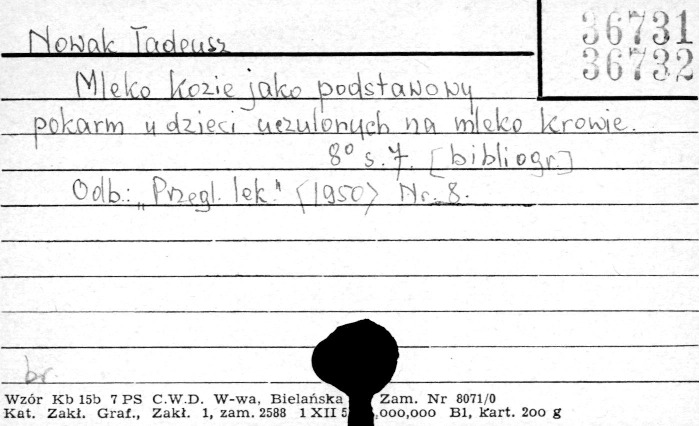 36731
36732
Nowak Tadeusz
Mleko kozie jako podstawowy
pokarm u dzieci uczulonych na mleko krowie.
8° s. 7. [bibliogr.]
Odb.: „Przegl. lek." <1950> Nr. 8.
br.
Wzór Kb 15b 7 PS C.W.D. W-wa, Bielańska Zam. Nr 8071/0
Kat. Zakł. Graf., Zakł. 1, zam. 2588 1 XII 5 ,000,000 B1, kart. 200 g